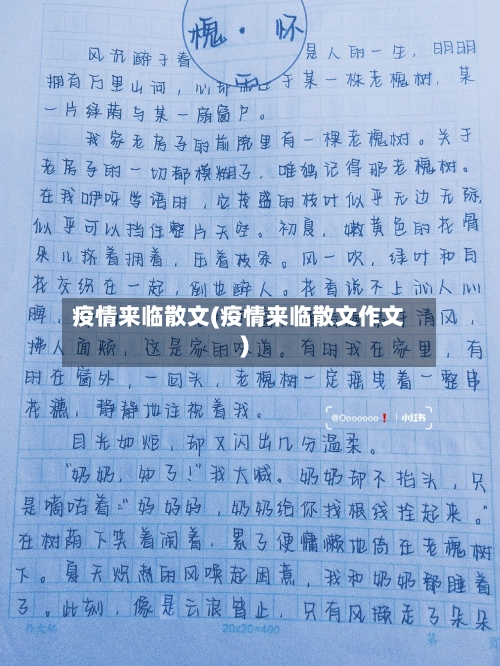 槐·怀
风沉醉于着 是人的一生,明明
拥有万里山河,心却 于某一株老槐树,某
一片绿荫与某一扇窗户。
我家老房子的前院里有一棵老槐树。关于
老房子的一切都模糊了,唯独记得那老槐树。
在我咿呀学语时,它茂盛的枝叶似乎无边无际,
似乎可以挡住整片天空。初夏,嫩黄色的花骨
朵儿挤着拥着,压着枝条。风一吹,绿叶和白
花交织在一起,倒也醉人。花香说不上沁人心
脾, 清风,
疫情来临散文(疫情来临散文作文
)
拂人面颊,这是家的味道。有时我在家里,有
时在窗外,一回头,老槐树一定摇曳着一整串
花穗,静静地注视着我。
@Ooooooo❗ 小红书
目光如炬,却又闪出几分温柔。
“奶奶,她了!”我大喊。奶奶却不抬头,只
是嘀咕着:“妈妈妈,奶奶给你找根线拴起来。”
在树荫下笑着闹着,累了便慵懒地倚在老槐树
下。夏天炽热的风唤起困意,我和奶奶都睡着
了。此刻,像是云浪皆止,只有风掀走了朵朵
作文纸 20x20=400 第